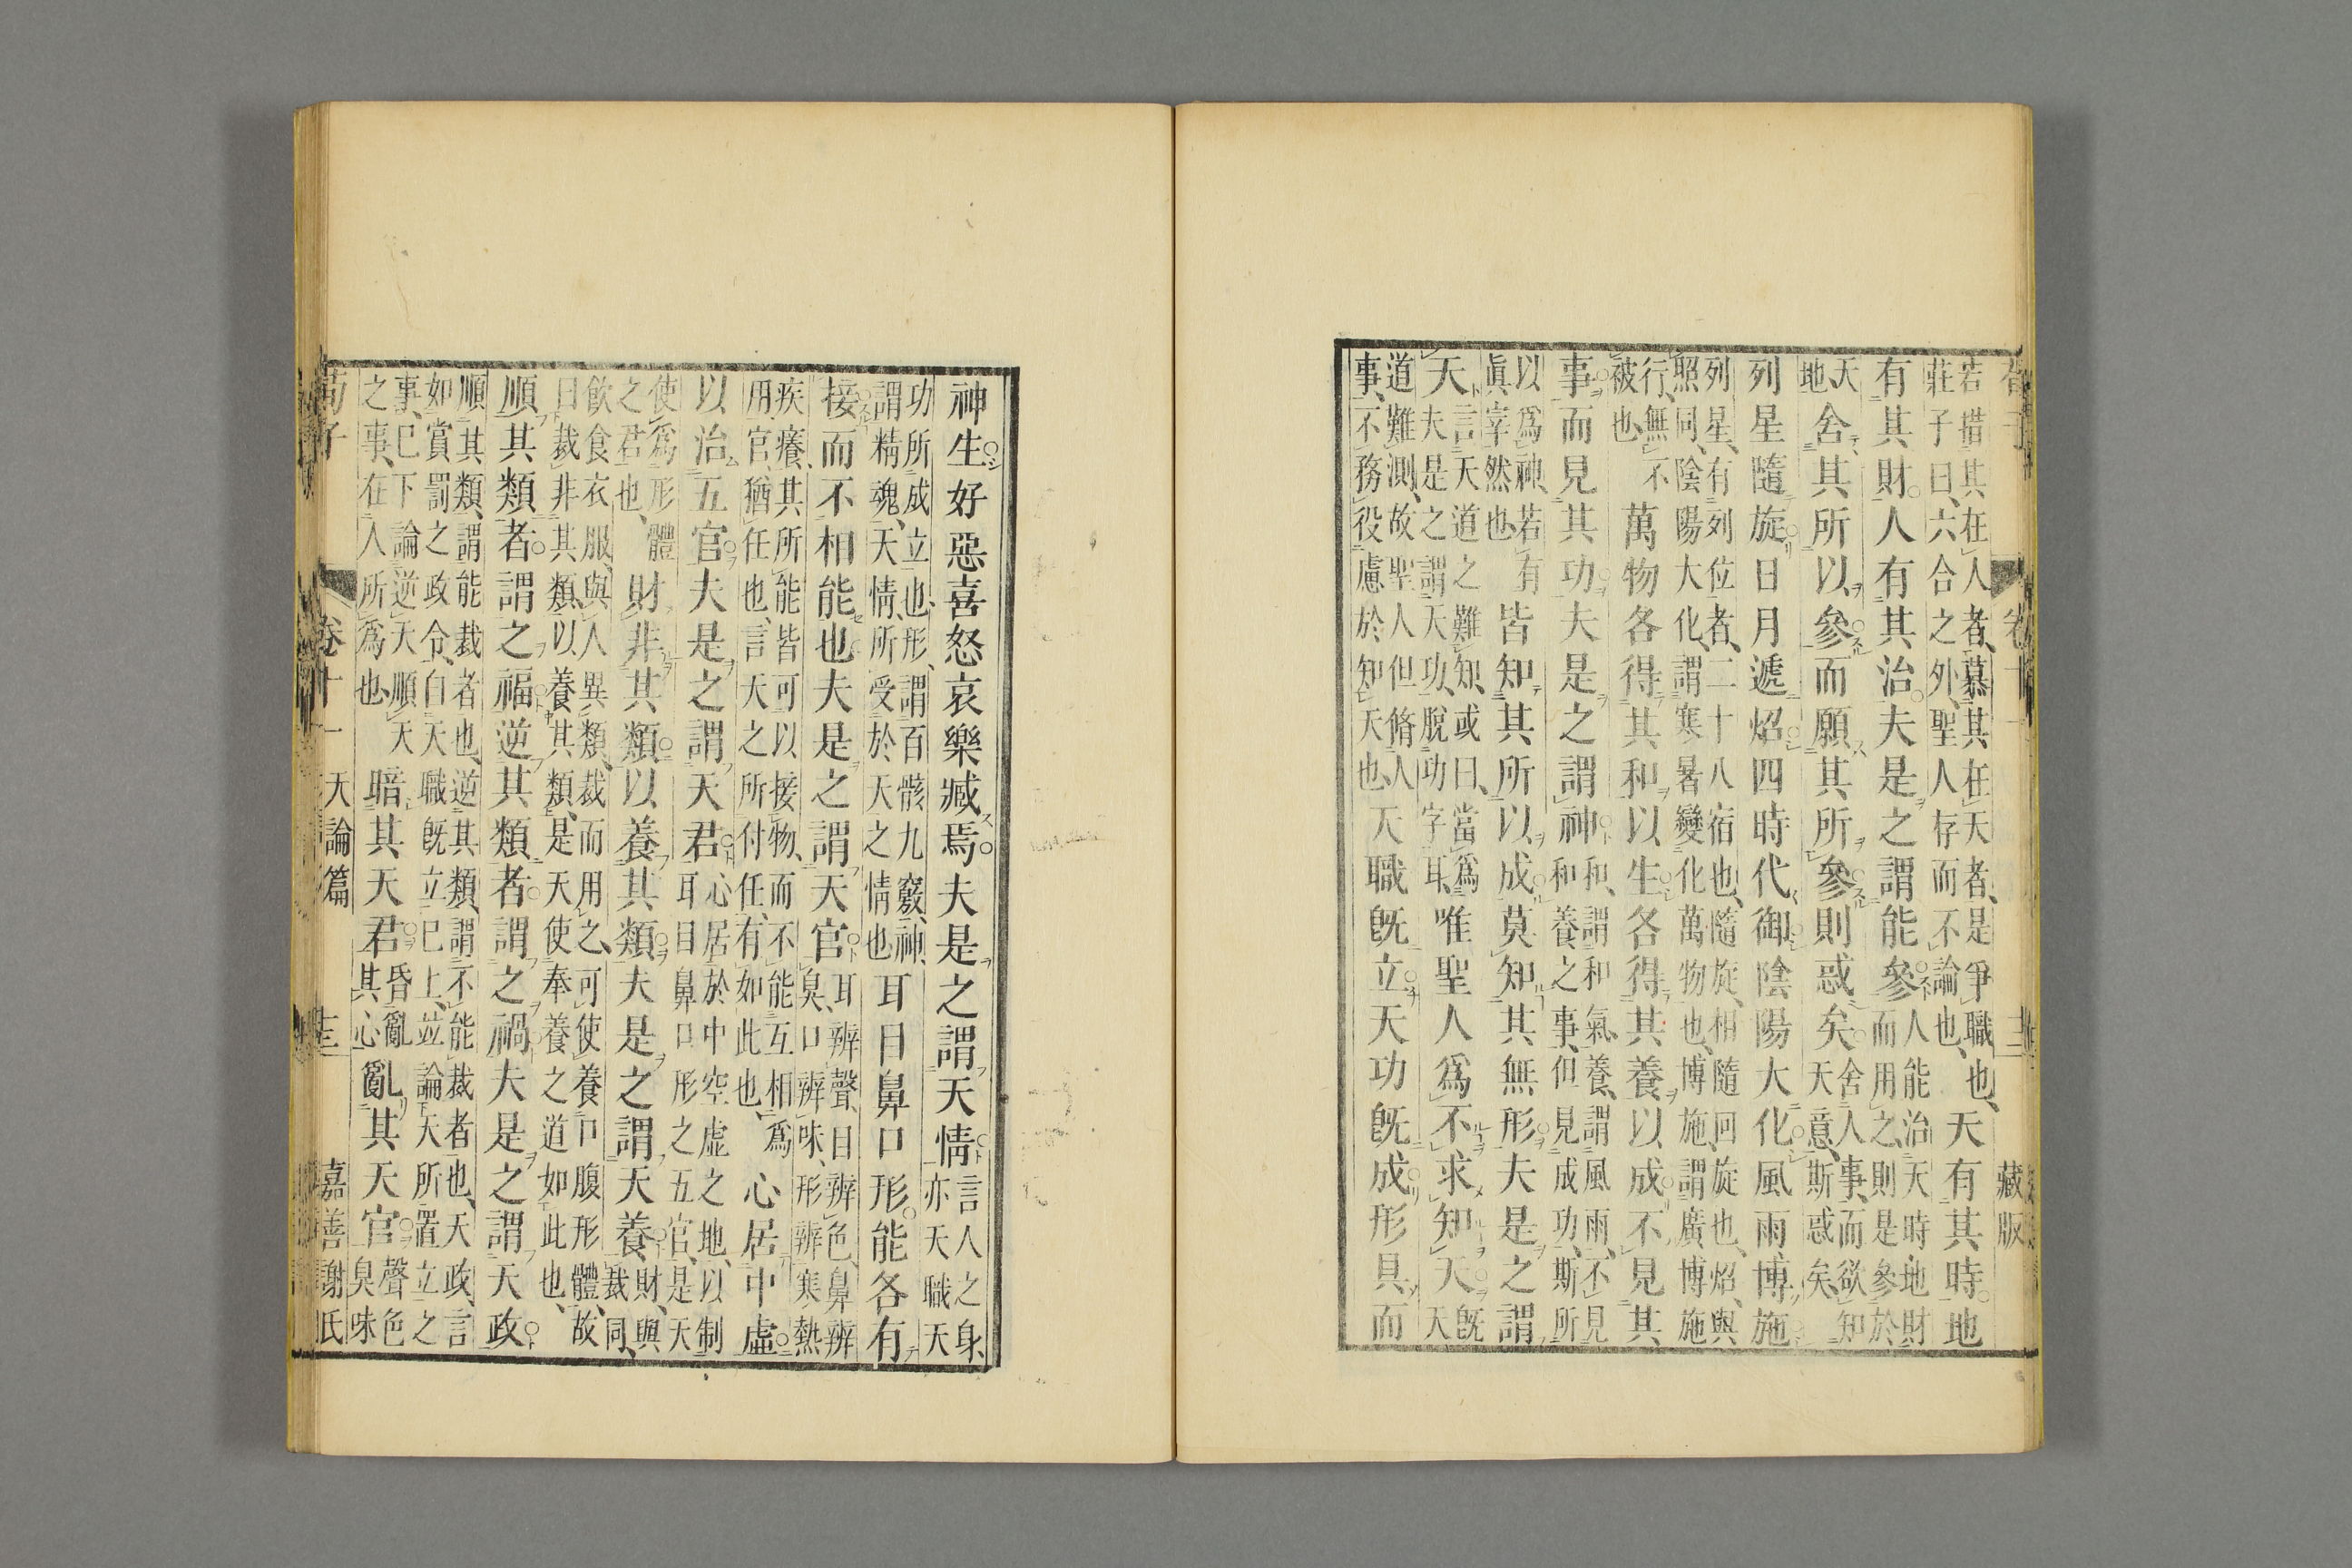 若措其在人者慕其在天者是爭職也
莊子曰六合之外聖人存而不論也
天有其時地
有其財人有其治夫是之謂能參
人能治天時地財
而用之則是參於
天
地
舍其所以參而願其所參則惑矣
舍人事而欲知
天意斯惑矣
列星隨旋日月遞炤四時代御陰陽大化風雨博施
列星有列位者二十八宿也隨旋相隨回旋也炤與
照同陰陽大化謂寒暑變化萬物也博施謂廣博施
行無不
被也
萬物各得其和以生各得其養以成不見其
事而見其功夫是之謂神
和謂和氣養謂風雨不見
和養之事但見成功斯所
以爲神若有
眞宰然也
皆知其所以成莫知其無形夫是之謂
天
言天道之難知或曰當爲
夫是之謂天功脫功字耳
唯聖人爲不求知天
旣天
道難測故聖人但脩人
事不務役慮於知天也
天職旣立天功旣成形具而
藏版
神生好惡喜怒哀樂臧焉夫是之謂天情
言人之身
亦天職天
功所成立也形謂百骸九竅神
謂精魂天情所受於天之情也
耳目鼻口形能各有
接而不相能也夫是之謂天官
耳辨聲目辨色鼻辨
臭口辨味形辨寒熱
疾癢其所能皆可以接物而不能互相爲
用官猶任也言天之所付任有如此也
心居中虛
以治五官夫是之謂天君
心居於中空虛之地以制
耳目鼻口形之五官是天
使爲形體
之君也
財非其類以養其類夫是之謂天養
財與
裁同
飲食衣服與人異類裁而用之可使養口腹形體故
曰裁非其類以養其類是天使奉養之道如此也
順其類者謂之福逆其類者謂之禍夫是之謂天政
順其類謂能裁者也逆其類謂不能裁者也天政言
如賞罰之政令自天職旣立已上竝論天所置立之
事已下論逆天順天
之事在人所爲也
暗其天君
昏亂
其心
亂其天官
聲色
臭味
荀子 卷十一 天論篇 十三 嘉善謝氏